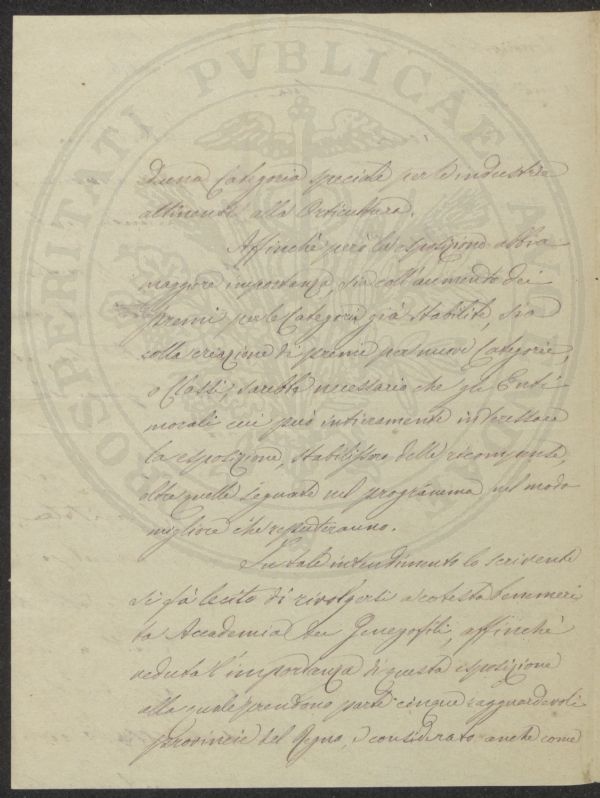 PROSPERITATI PVBLICAE AU
d'una Categoria speciale per le industrie
attinenti alla Orticultura.
Affinchè però la esposizione abbia
maggiore importanza sia coll'aumento dei
premi per le Categorie già stabilite, sia
colla creazione di premi per nuove Categorie,
o Classi, sarebbe necessario che gli Enti
morali cui può intieramente interessare
la esposizione, stabilissero delle ricompense,
oltre quelle segnate nel programma nel modo
migliore che reputeranno.
In tale intendimento lo scrivente
si fà lecito di rivolgersi a cotesta benemeri
ta Accademia dei Georgofili, affinchè
veduta l'importanza di questa esposizione
alla quale prendono parte cinque ragguardevoli
provincie del Regno, e considerato anche come